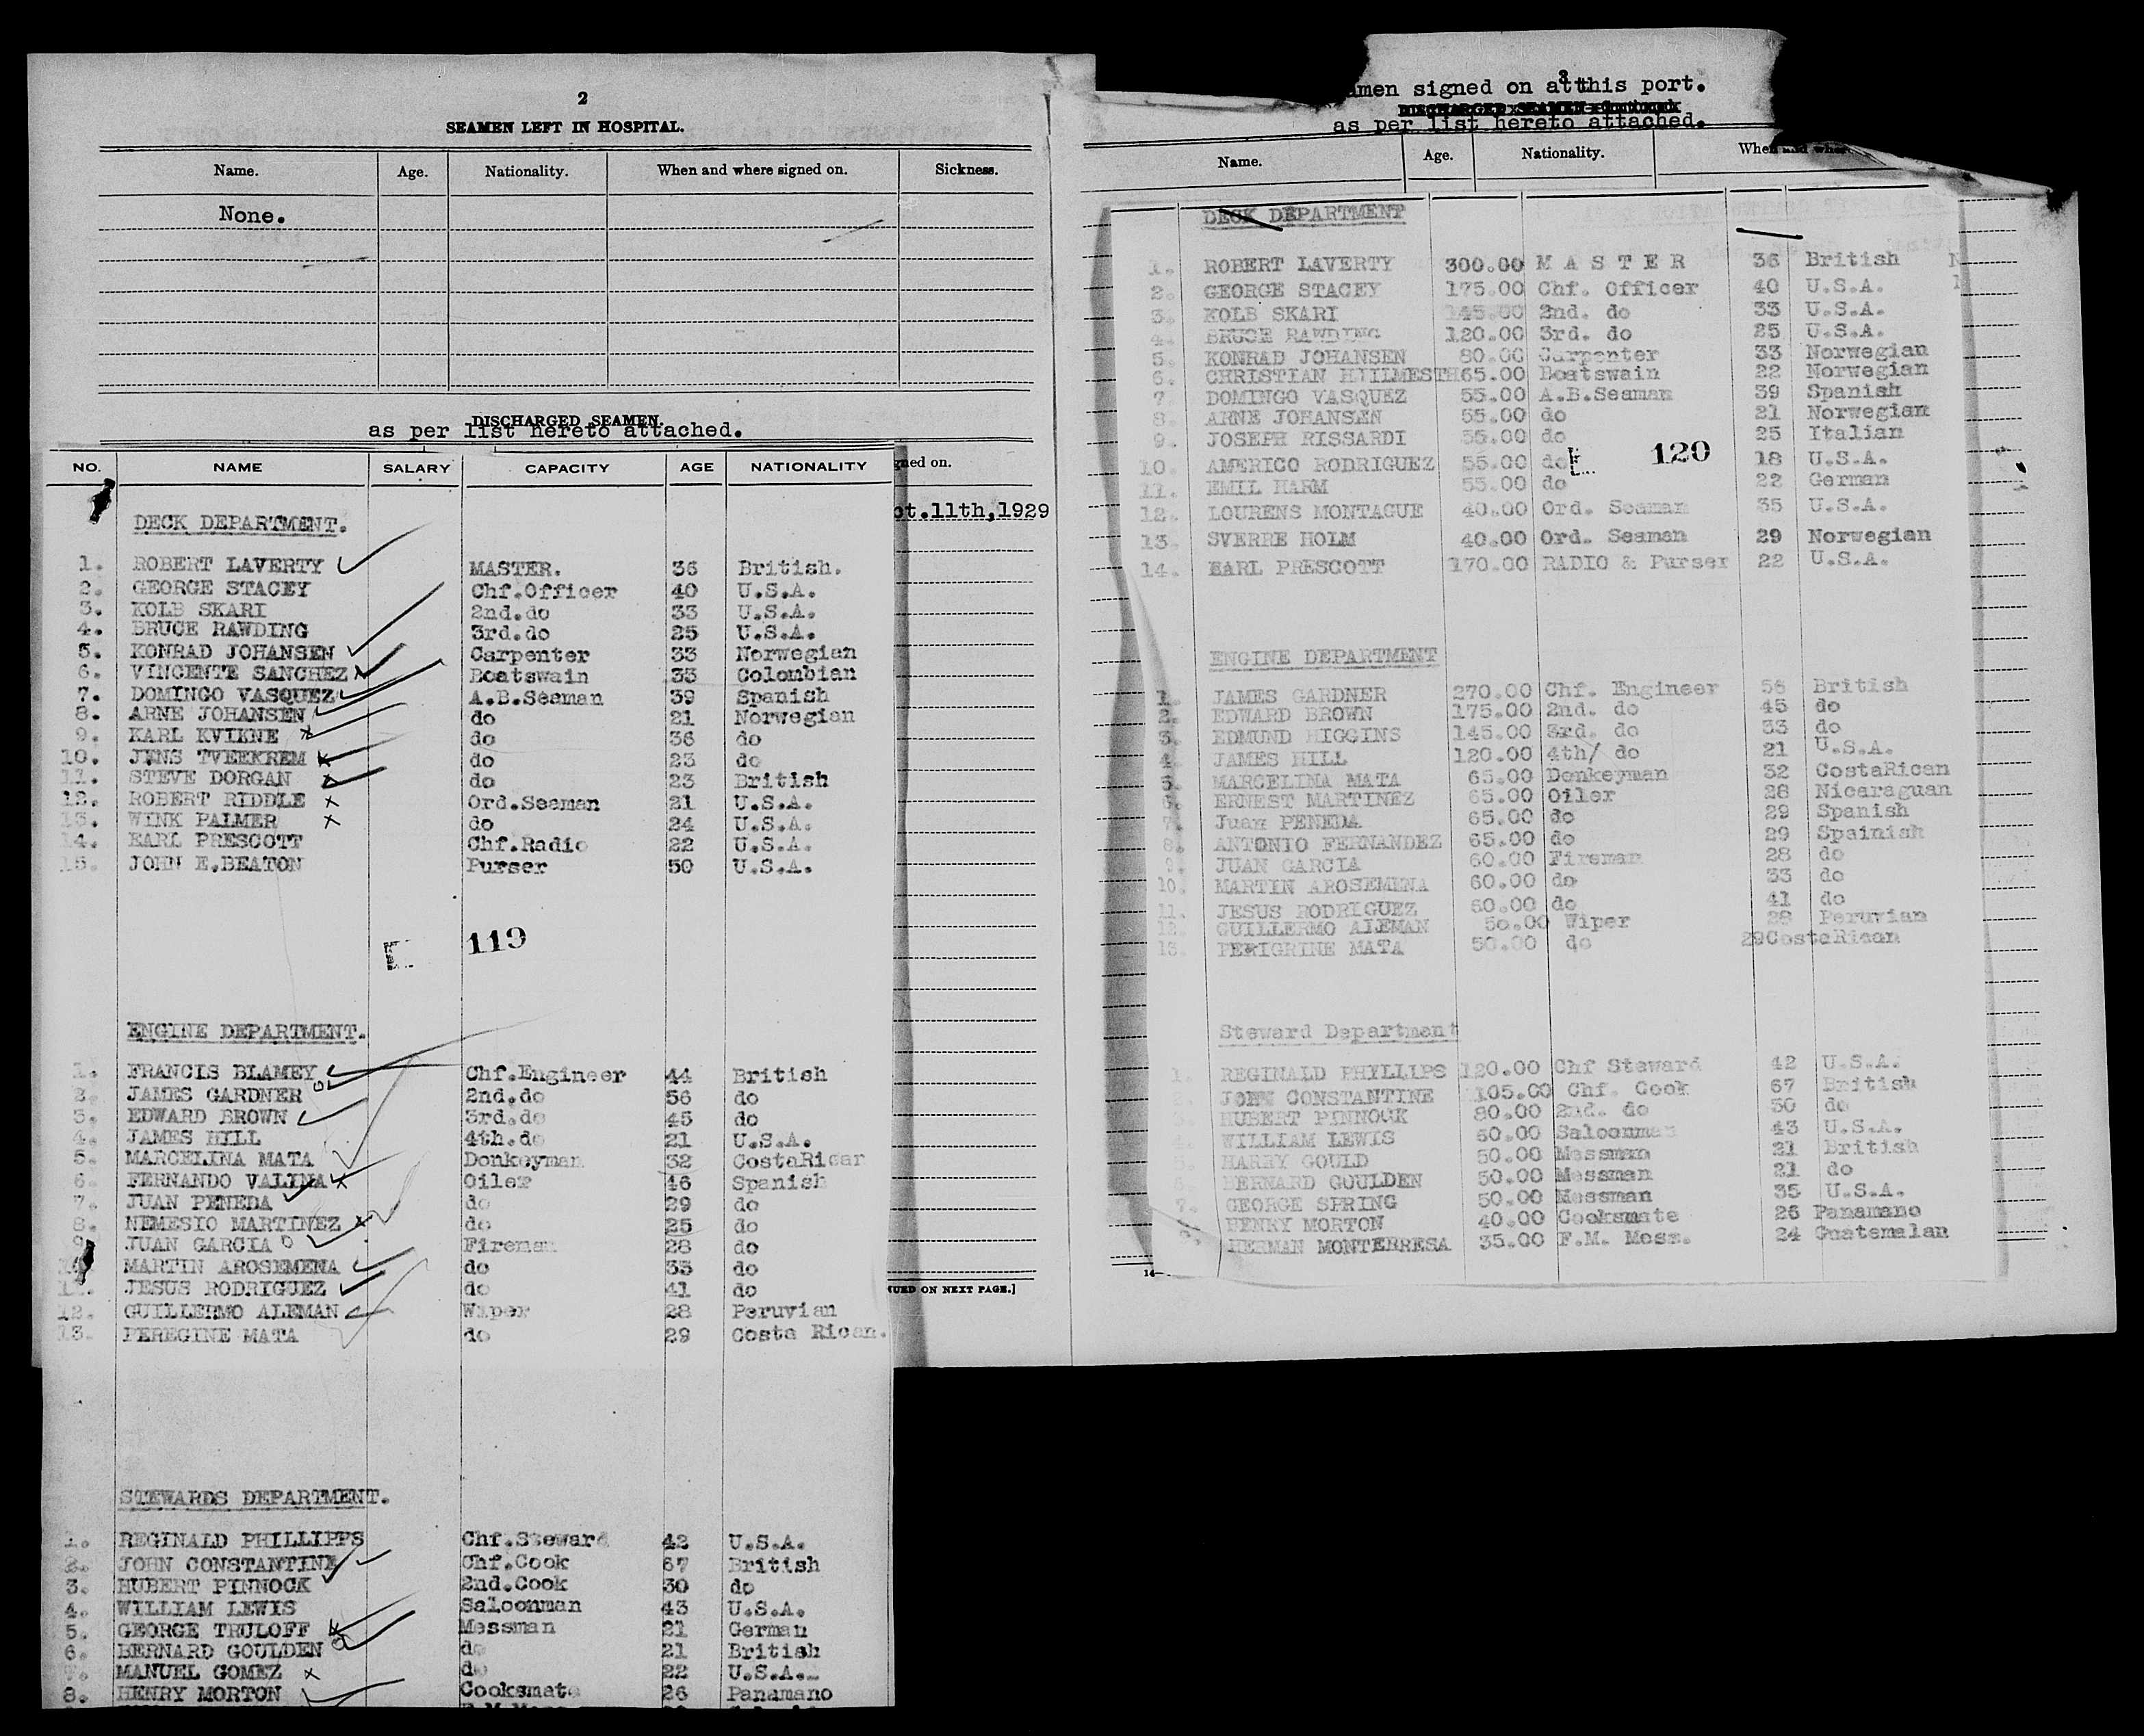 2
SEAMEN LEFT IN HOSPITAL.
Name. Age. Nationality. When and where signed on. Sickness.
None.
DISCHARGED SEAMEN.
as per list hereto attached.
NO. NAME SALARY CAPACITY AGE NATIONALITY
ned on.
ct.11th,1929
DECK DEPARTMENT.
1. ROBERT LAVERTY MASTER. 36 British.
2. GEORGE STACEY Chf.Officer 40 U.S.A.
3. KOLB SKARI 2nd.do 33 U.S.A.
4. BRUCE RAWDING 3rd.do 25 U.S.A.
5. KONRAD JOHANSEN Carpenter 33 Norwegian
6. VINCENTE SANCHEZ Boatswain 33 Colombian
7. DOMINGO VASQUEZ A.B.Seaman 39 Spanish
8. ARNE JOHANSEN do 21 Norwegian
9. KARL KVIKNE do 36 do
10. JENS TVEEKREM do 23 do
11. STEVE DORGAN do 23 British
12. ROBERT RIDDLE Ord.Seaman 21 U.S.A.
13. WINK PALMER do 24 U.S.A.
14. EARL PRESCOTT Chf.Radio 22 U.S.A.
15. JOHN E.BEATON Purser 50 U.S.A.
119
ENGINE DEPARTMENT.
1. FRANCIS BLAMEY Chf.Engineer 44 British
2. JAMES GARDNER 2nd.do 56 do
3. EDWARD BROWN 3rd.do 45 do
4. JAMES HILL 4th.do 21 U.S.A.
5. MARCELINA MATA Donkeyman 32 CostaRican
6. FERNANDO VALINA Oiler 46 Spanish
7. JUAN PENEDA do 29 do
8. NEMESIO MARTINEZ do 25 do
9. JUAN GARCIA Fireman 28 do
10. MARTIN AROSEMENA do 33 do
11. JESUS RODRIGUEZ do 41 do
12. GUILLERMO ALEMAN Wiper 28 Peruvian
13. PEREGINE MATA do 29 Costa Rican.
STEWARDS DEPARTMENT.
1. REGINALD PHILLIPPS Chf.Steward 42 U.S.A.
2. JOHN CONSTANTINE Chf.Cook 67 British
3. HUBERT PINNOCK 2nd.Cook 30 do
4. WILLIAM LEWIS Saloonman 43 U.S.A.
5. GEORGE TRULOFF Messman 21 German
6. BERNARD GOULDEN do 21 British
7. MANUEL GOMEZ do 22 U.S.A.
8. HENRY MORTON Cooksmate 26 Panamano
UED ON NEXT PAGE.]
3
amen signed on at this port.
DISCHARGED SEAMEN
as per list hereto attached.
Name. Age. Nationality. When and where
DECK DEPARTMENT
1. ROBERT LAVERTY 300.00 M A S T E R 36 British
2. GEORGE STACEY 175.00 Chf. Officer 40 U.S.A.
3. KOLB SKARI 145.00 2nd. do 33 U.S.A.
4. BRUCE RAWDING 120.00 3rd. do 25 U.S.A.
5. KONRAD JOHANSEN 80.00 Carpenter 33 Norwegian
6. CHRISTIAN HJILMESTH 65.00 Boatswain 22 Norwegian
7. DOMINGO VASQUEZ 55.00 A.B.Seaman 39 Spanish
8. ARNE JOHANSEN 55.00 do 21 Norwegian
9. JOSEPH RISSARDI 55.00 do 25 Italian
10. AMERICO RODRIGUEZ 55.00 do 18 U.S.A.
120
11. EMIL HARM 55.00 do 22 German
12. LOURENS MONTAGUE 40.00 Ord. Seaman 35 U.S.A.
13. SVERRE HOLM 40.00 Ord. Seaman 29 Norwegian
14. EARL PRESCOTT 170.00 RADIO & Purser 22 U.S.A.
ENGINE DEPARTMENT
1. JAMES GARDNER 270.00 Chf. Engineer 56 British
2. EDWARD BROWN 175.00 2nd. do 45 do
3. EDMUND HIGGINS 145.00 3rd. do 33 do
4. JAMES HILL 120.00 4th/ do 21 U.S.A.
5. MARCELINA MATA 65.00 Donkeyman 32 CostaRican
6. ERNEST MARTINEZ 65.00 Oiler 28 Nicaraguan
7. Juan PENEDA 65.00 do 29 Spanish
8. ANTONIO FERNANDEZ 65.00 do 29 Spainish
9. JUAN GARCIA 60.00 Fireman 28 do
10. MARTIN AROSEMENA 60.00 do 33 do
11. JESUS RODRIGUEZ 60.00 do 41 do
12. GUILLERMO ALEMAN 50.00 Wiper 28 Peruvian
13. PERIGRINE MATA 50.00 do 29CostaRican
Steward Department
1. REGINALD PHYLLIPS 120.00 Chf Steward 42 U.S.A.
2. JOHN CONSTANTINE 105.00 Chf. Cook 67 British
3. HUBERT PINNOCK 80.00 2nd. do 30 do
WILLIAM LEWIS 60.00 Saloonman 43 U.S.A.
5. HARRY GOULD 50.00 Messman 21 British
6. BERNARD GOULDEN 50.00 Messman 21 do
7. GEORGE SPRING 50.00 Messman 35 U.S.A.
HENRY MORTON 40.00 Cooksmate 26 Panamano
HERMAN MONTERRESA 35.00 F.M. Mess. 24 Guatemalan